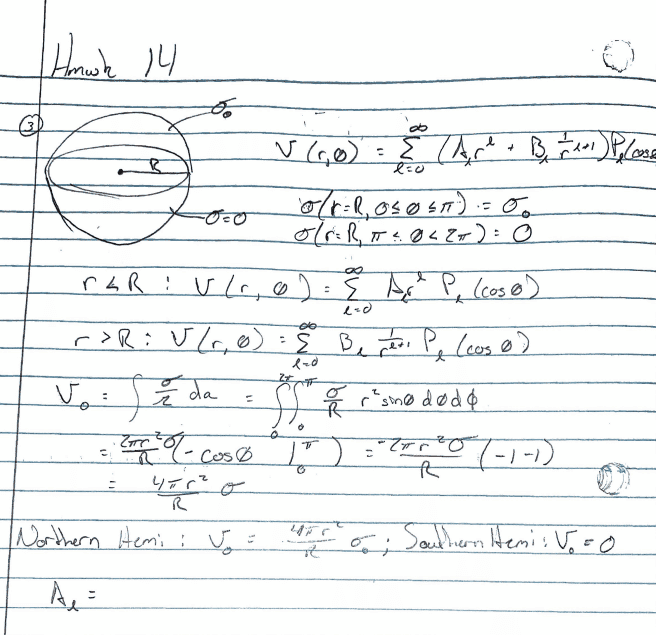 Hmwk 14
③
σ₀
R
σ=0
V(r,θ) = Σ_{l=0}^{∞} (A_l r^l + B_l 1/r^{l+1}) P_l(cosθ
σ(r=R, 0≤θ≤π) = σ₀
σ(r=R, π≤θ<2π) = 0
r<R : V(r,θ) = Σ_{l=0}^{∞} A_l r^l P_l(cosθ)
r>R : V(r,θ) = Σ_{l=0}^{∞} B_l 1/r^{l+1} P_l(cosθ)
V₀ = ∫ σ/r da = ∫_0^{2π}∫_0^π σ/R r² sinθ dθ dϕ
= 2πr²σ/R (-cosθ |_0^π) = -2πr²σ/R (-1-1)
= 4πr²/R σ
Northern Hemi : V₀ = 4πr²/R σ₀ ; Southern Hemi : V₀ = 0
A_l =